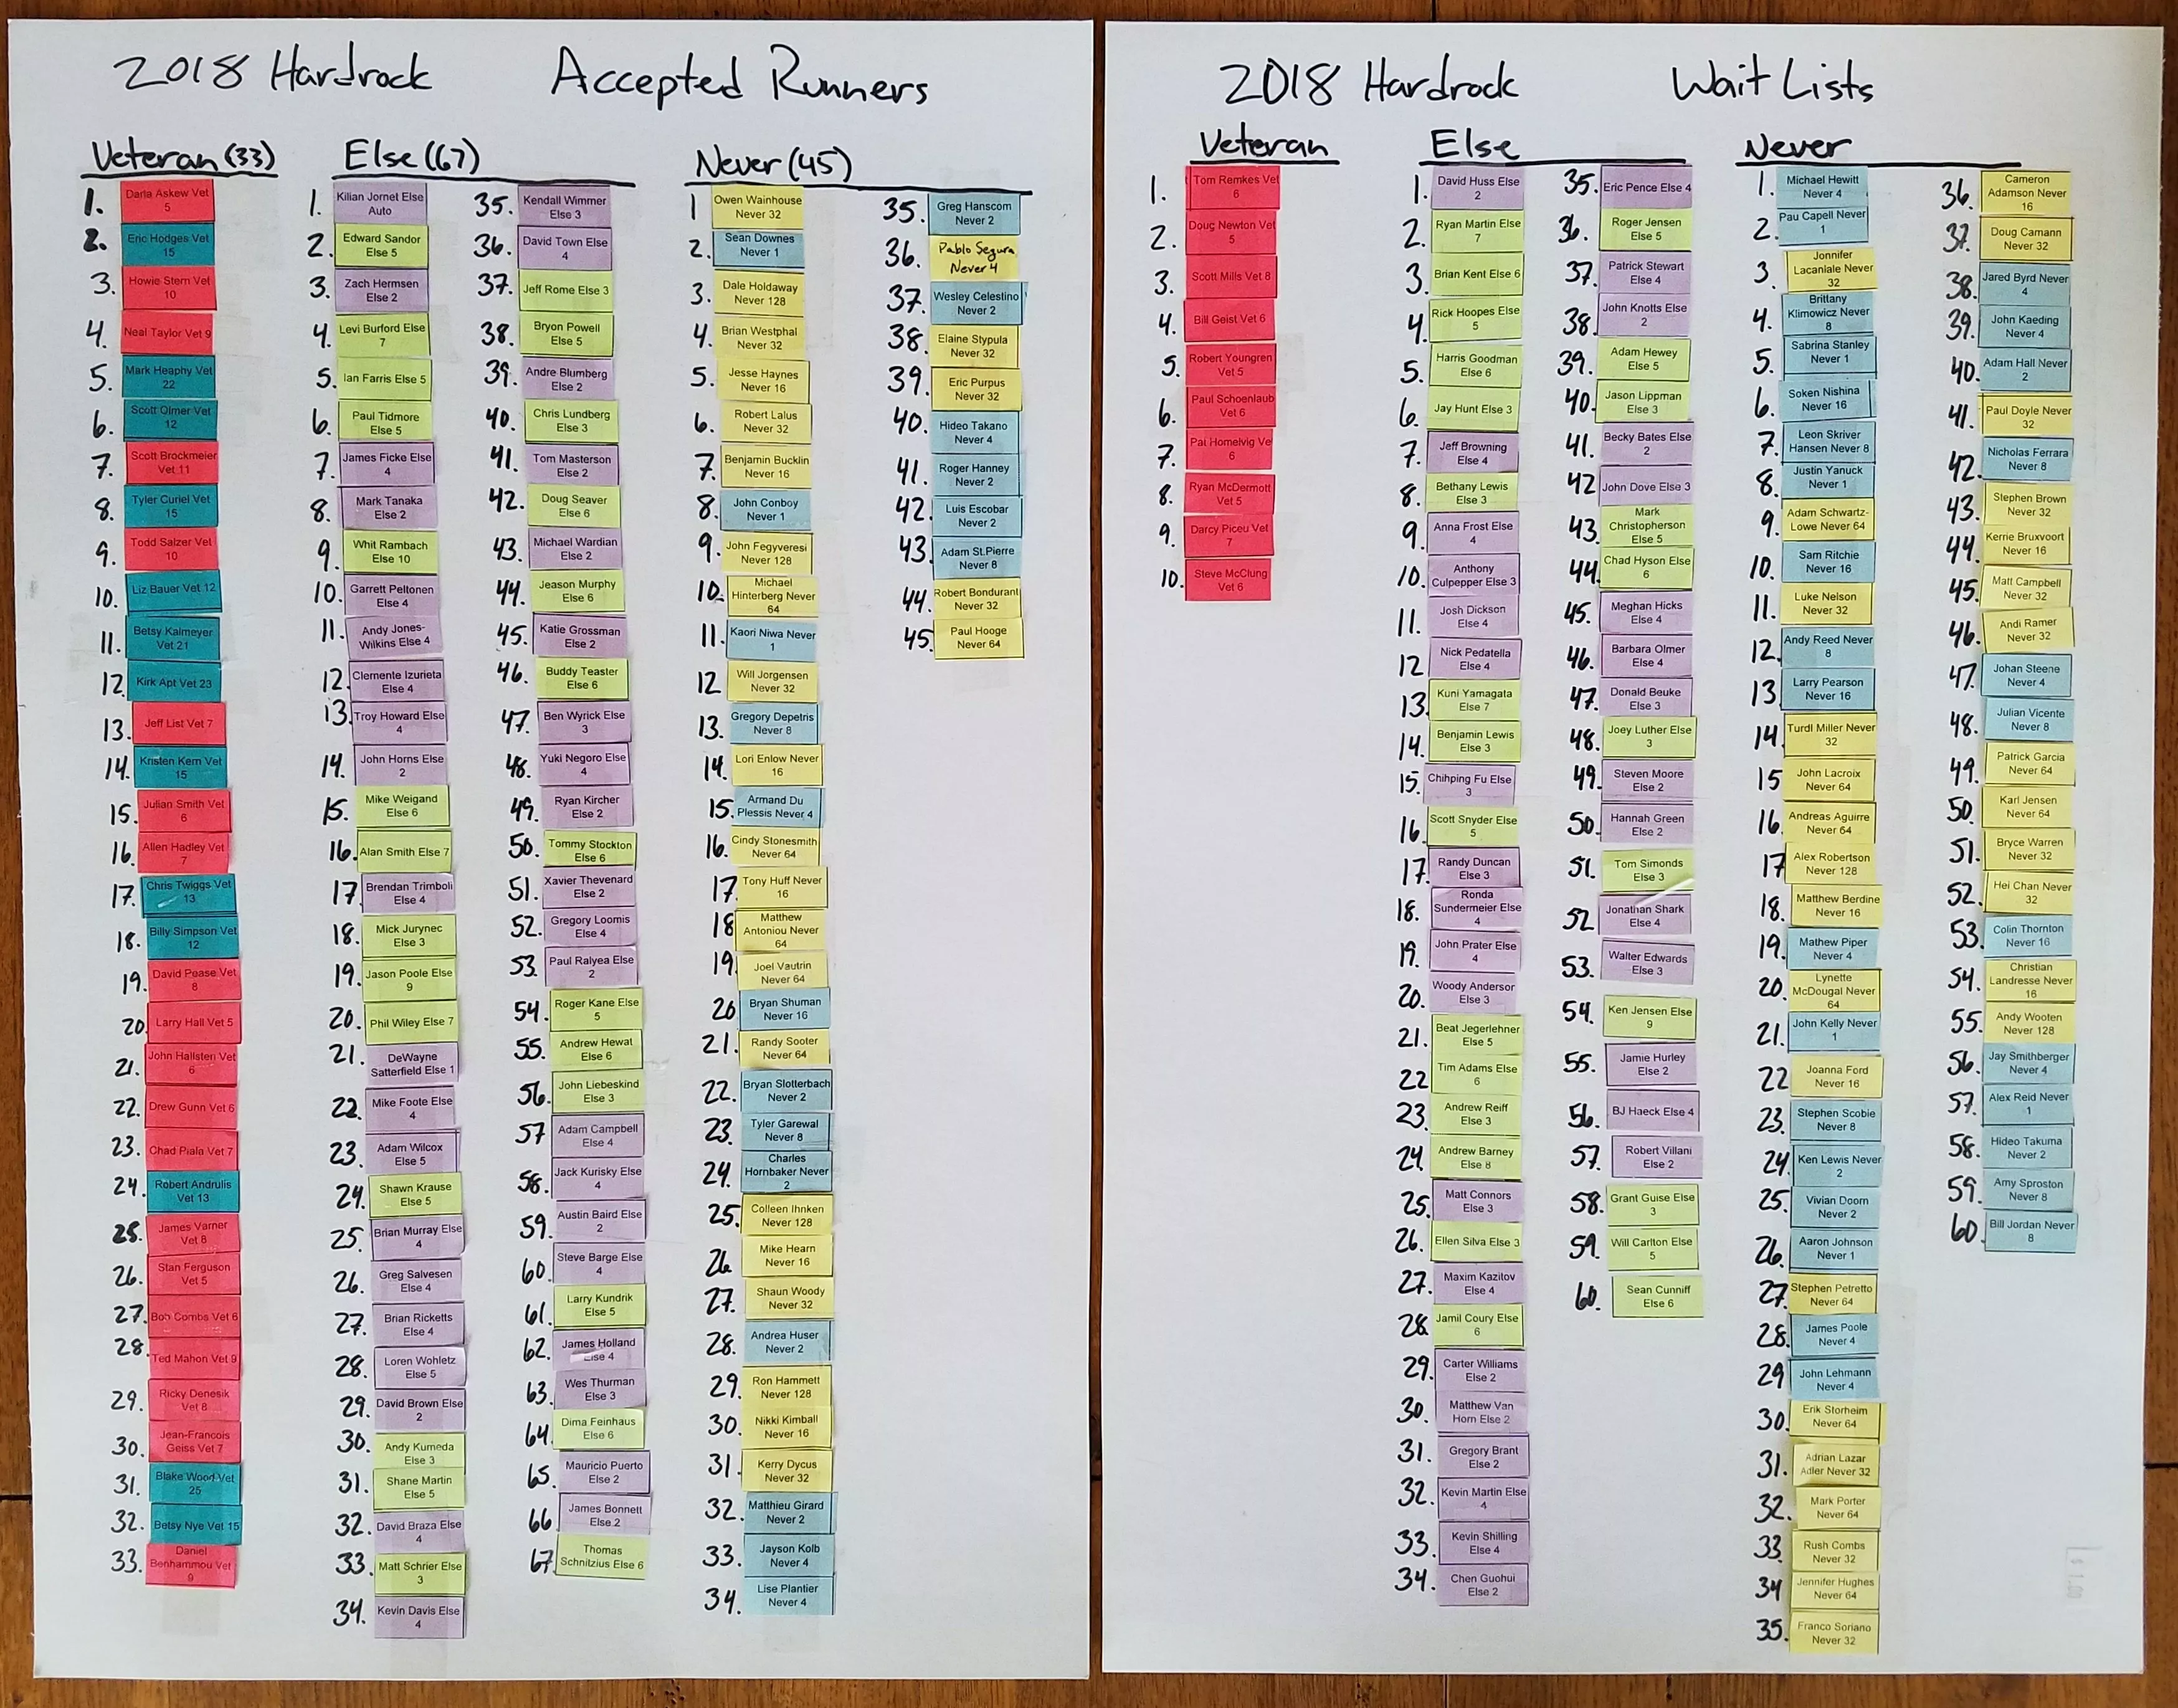 2018 Hardrock Accepted Runners
Veteran (33)
1. Darla Askew Vet
5
2. Eric Hodges Vet
15
3. Howie Stern Vet
10
4. Neal Taylor Vet 9
5. Mark Heaphy Vet
22
6. Scott Olmer Vet
12
7. Scott Brockmeier
Vet 11
8. Tyler Curiel Vet
15
9. Todd Salzer Vet
10
10. Liz Bauer Vet 12
11. Betsy Kalmeyer
Vet 21
12. Kirk Apt Vet 23
13. Jeff List Vet 7
14. Kristen Kern Vet
15
15. Julian Smith Vet
6
16. Allen Hadley Vet
7
17. Chris Twiggs Vet
13
18. Billy Simpson Vet
12
19. David Pease Vet
8
20. Larry Hall Vet 5
21. John Hallsten Vet
6
22. Drew Gunn Vet 6
23. Chad Piala Vet 7
24. Robert Andrulis
Vet 13
25. James Varner
Vet 8
26. Stan Ferguson
Vet 5
27. Bob Combs Vet 6
28. Ted Mahon Vet 9
29. Ricky Denesik
Vet 8
30. Jean-Francois
Geiss Vet 7
31. Blake Wood Vet
25
32. Betsy Nye Vet 15
33. Daniel
Benhammou Vet
9
Else (67)
1. Kilian Jornet Else
Auto
2. Edward Sandor
Else 5
3. Zach Hermsen
Else 2
4. Levi Burford Else
7
5. Ian Farris Else 5
6. Paul Tidmore
Else 5
7. James Ficke Else
4
8. Mark Tanaka
Else 2
9. Whit Rambach
Else 10
10. Garrett Peltonen
Else 4
11. Andy Jones-
Wilkins Else 4
12. Clemente Izurieta
Else 4
13. Troy Howard Else
4
14. John Horns Else
2
15. Mike Weigand
Else 6
16. Alan Smith Else 7
17. Brendan Trimboli
Else 4
18. Mick Jurynec
Else 3
19. Jason Poole Else
9
20. Phil Wiley Else 7
21. DeWayne
Satterfield Else 1
22. Mike Foote Else
4
23. Adam Wilcox
Else 5
24. Shawn Krause
Else 5
25. Brian Murray Else
4
26. Greg Salvesen
Else 4
27. Brian Ricketts
Else 4
28. Loren Wohletz
Else 5
29. David Brown Else
2
30. Andy Kumeda
Else 3
31. Shane Martin
Else 5
32. David Braza Else
4
33. Matt Schrier Else
3
34. Kevin Davis Else
4
35. Kendall Wimmer
Else 3
36. David Town Else
4
37. Jeff Rome Else 3
38. Bryon Powell
Else 5
39. Andre Blumberg
Else 2
40. Chris Lundberg
Else 3
41. Tom Masterson
Else 2
42. Doug Seaver
Else 6
43. Michael Wardian
Else 2
44. Jeason Murphy
Else 6
45. Katie Grossman
Else 2
46. Buddy Teaster
Else 6
47. Ben Wyrick Else
3
48. Yuki Negoro Else
4
49. Ryan Kircher
Else 2
50. Tommy Stockton
Else 6
51. Xavier Thevenard
Else 2
52. Gregory Loomis
Else 4
53. Paul Ralyea Else
2
54. Roger Kane Else
5
55. Andrew Hewat
Else 6
56. John Liebeskind
Else 3
57 Adam Campbell
Else 4
58. Jack Kurisky Else
4
59. Austin Baird Else
2
60. Steve Barge Else
4
61. Larry Kundrik
Else 5
62. James Holland
Else 4
63. Wes Thurman
Else 3
64. Dima Feinhaus
Else 6
65. Mauricio Puerto
Else 2
66 James Bonnett
Else 2
67. Thomas
Schnitzius Else 6
Never (45)
1 Owen Wainhouse
Never 32
2. Sean Downes
Never 1
3. Dale Holdaway
Never 128
4. Brian Westphal
Never 32
5. Jesse Haynes
Never 16
6. Robert Lalus
Never 32
7. Benjamin Bucklin
Never 16
8. John Conboy
Never 1
9. John Fegyveresi
Never 128
10. Michael
Hinterberg Never
64
11. Kaori Niwa Never
1
12 Will Jorgensen
Never 32
13. Gregory Depetris
Never 8
14. Lori Enlow Never
16
15. Armand Du
Plessis Never 4
16. Cindy Stonesmith
Never 64
17. Tony Huff Never
16
18 Matthew
Antoniou Never
64
19. Joel Vautrin
Never 64
20 Bryan Shuman
Never 16
21. Randy Sooter
Never 64
22. Bryan Slotterbach
Never 2
23. Tyler Garewal
Never 8
24. Charles
Hornbaker Never
2
25. Colleen Ihnken
Never 128
26 Mike Hearn
Never 16
27. Shaun Woody
Never 32
28. Andrea Huser
Never 2
29. Ron Hammett
Never 128
30. Nikki Kimball
Never 16
31. Kerry Dycus
Never 32
32. Matthieu Girard
Never 2
33. Jayson Kolb
Never 4
34. Lise Plantier
Never 4
35. Greg Hanscom
Never 2
36. Pablo Segura
Never 4
37. Wesley Celestino
Never 2
38. Elaine Stypula
Never 32
39. Eric Purpus
Never 32
40. Hideo Takano
Never 4
41. Roger Hanney
Never 2
42. Luis Escobar
Never 2
43. Adam St.Pierre
Never 8
44. Robert Bondurant
Never 32
45. Paul Hooge
Never 64
2018 Hardrock Wait Lists
Veteran
1. Tom Remkes Vet
6
2. Doug Newton Vet
5
3. Scott Mills Vet 8
4. Bill Geist Vet 6
5. Robert Youngren
Vet 5
6. Paul Schoenlaub
Vet 6
7. Pat Homelvig Ve
6
8. Ryan McDermott
Vet 5
9. Darcy Piceu Vet
7
10. Steve McClung
Vet 6
Else
1. David Huss Else
2
2. Ryan Martin Else
7
3. Brian Kent Else 6
4. Rick Hoopes Else
5
5. Harris Goodman
Else 6
6. Jay Hunt Else 3
7. Jeff Browning
Else 4
8. Bethany Lewis
Else 3
9 Anna Frost Else
4
10. Anthony
Culpepper Else 3
11. Josh Dickson
Else 4
12 Nick Pedatella
Else 4
13. Kuni Yamagata
Else 7
14. Benjamin Lewis
Else 3
15. Chihping Fu Else
3
16. Scott Snyder Else
5
17. Randy Duncan
Else 3
18. Ronda
Sundermeier Else
4
19. John Prater Else
4
20. Woody Anderson
Else 3
21. Beat Jegerlehner
Else 5
22 Tim Adams Else
6
23. Andrew Reiff
Else 3
24. Andrew Barney
Else 8
25. Matt Connors
Else 3
26. Ellen Silva Else 3
27. Maxim Kazitov
Else 4
28. Jamil Coury Else
6
29. Carter Williams
Else 2
30. Matthew Van
Horn Else 2
31. Gregory Brant
Else 2
32. Kevin Martin Else
4
33. Kevin Shilling
Else 4
34. Chen Guohui
Else 2
35. Eric Pence Else 4
36. Roger Jensen
Else 5
37. Patrick Stewart
Else 4
38. John Knotts Else
2
39. Adam Hewey
Else 5
40. Jason Lippman
Else 3
41. Becky Bates Else
2
42 John Dove Else 3
43. Mark
Christopherson
Else 5
44. Chad Hyson Else
6
45. Meghan Hicks
Else 4
46. Barbara Olmer
Else 4
47. Donald Beuke
Else 3
48. Joey Luther Else
3
49. Steven Moore
Else 2
50. Hannah Green
Else 2
51. Tom Simonds
Else 3
52 Jonathan Shark
Else 4
53. Walter Edwards
Else 3
54. Ken Jensen Else
9
55. Jamie Hurley
Else 2
56. BJ Haeck Else 4
57. Robert Villani
Else 2
58. Grant Guise Else
3
59. Will Carlton Else
5
60. Sean Cunniff
Else 6
Never
1. Michael Hewitt
Never 4
2. Pau Capell Never
1
3. Jonnifer
Lacaniale Never
32
4. Brittany
Klimowicz Never
8
5. Sabrina Stanley
Never 1
6. Soken Nishina
Never 16
7. Leon Skriver
Hansen Never 8
8. Justin Yanuck
Never 1
9. Adam Schwartz-
Lowe Never 64
10. Sam Ritchie
Never 16
11. Luke Nelson
Never 32
12. Andy Reed Never
8
13. Larry Pearson
Never 16
14. Turdl Miller Never
32
15 John Lacroix
Never 64
16. Andreas Aguirre
Never 64
17 Alex Robertson
Never 128
18. Matthew Berdine
Never 16
19. Mathew Piper
Never 4
20. Lynette
McDougal Never
64
21. John Kelly Never
1
22 Joanna Ford
Never 16
23. Stephen Scobie
Never 8
24. Ken Lewis Never
2
25. Vivian Doorn
Never 2
26. Aaron Johnson
Never 1
27. Stephen Petretto
Never 64
28. James Poole
Never 4
29 John Lehmann
Never 4
30. Erik Storheim
Never 64
31. Adrian Lazar
Adler Never 32
32. Mark Porter
Never 64
33. Rush Combs
Never 32
34 Jennifer Hughes
Never 64
35. Franco Soriano
Never 32
36. Cameron
Adamson Never
16
37. Doug Camann
Never 32
38. Jared Byrd Never
4
39. John Kaeding
Never 4
40. Adam Hall Never
2
41. Paul Doyle Never
32
42. Nicholas Ferrara
Never 8
43. Stephen Brown
Never 32
44. Kerrie Bruxvoort
Never 16
45. Matt Campbell
Never 32
46. Andi Ramer
Never 32
47. Johan Steene
Never 4
48. Julian Vicente
Never 8
49. Patrick Garcia
Never 64
50. Karl Jensen
Never 64
51. Bryce Warren
Never 32
52. Hei Chan Never
32
53. Colin Thornton
Never 16
54. Christian
Landresse Never
16
55. Andy Wooten
Never 128
56. Jay Smithberger
Never 4
57. Alex Reid Never
1
58. Hideo Takuma
Never 2
59. Amy Sproston
Never 8
60. Bill Jordan Never
8